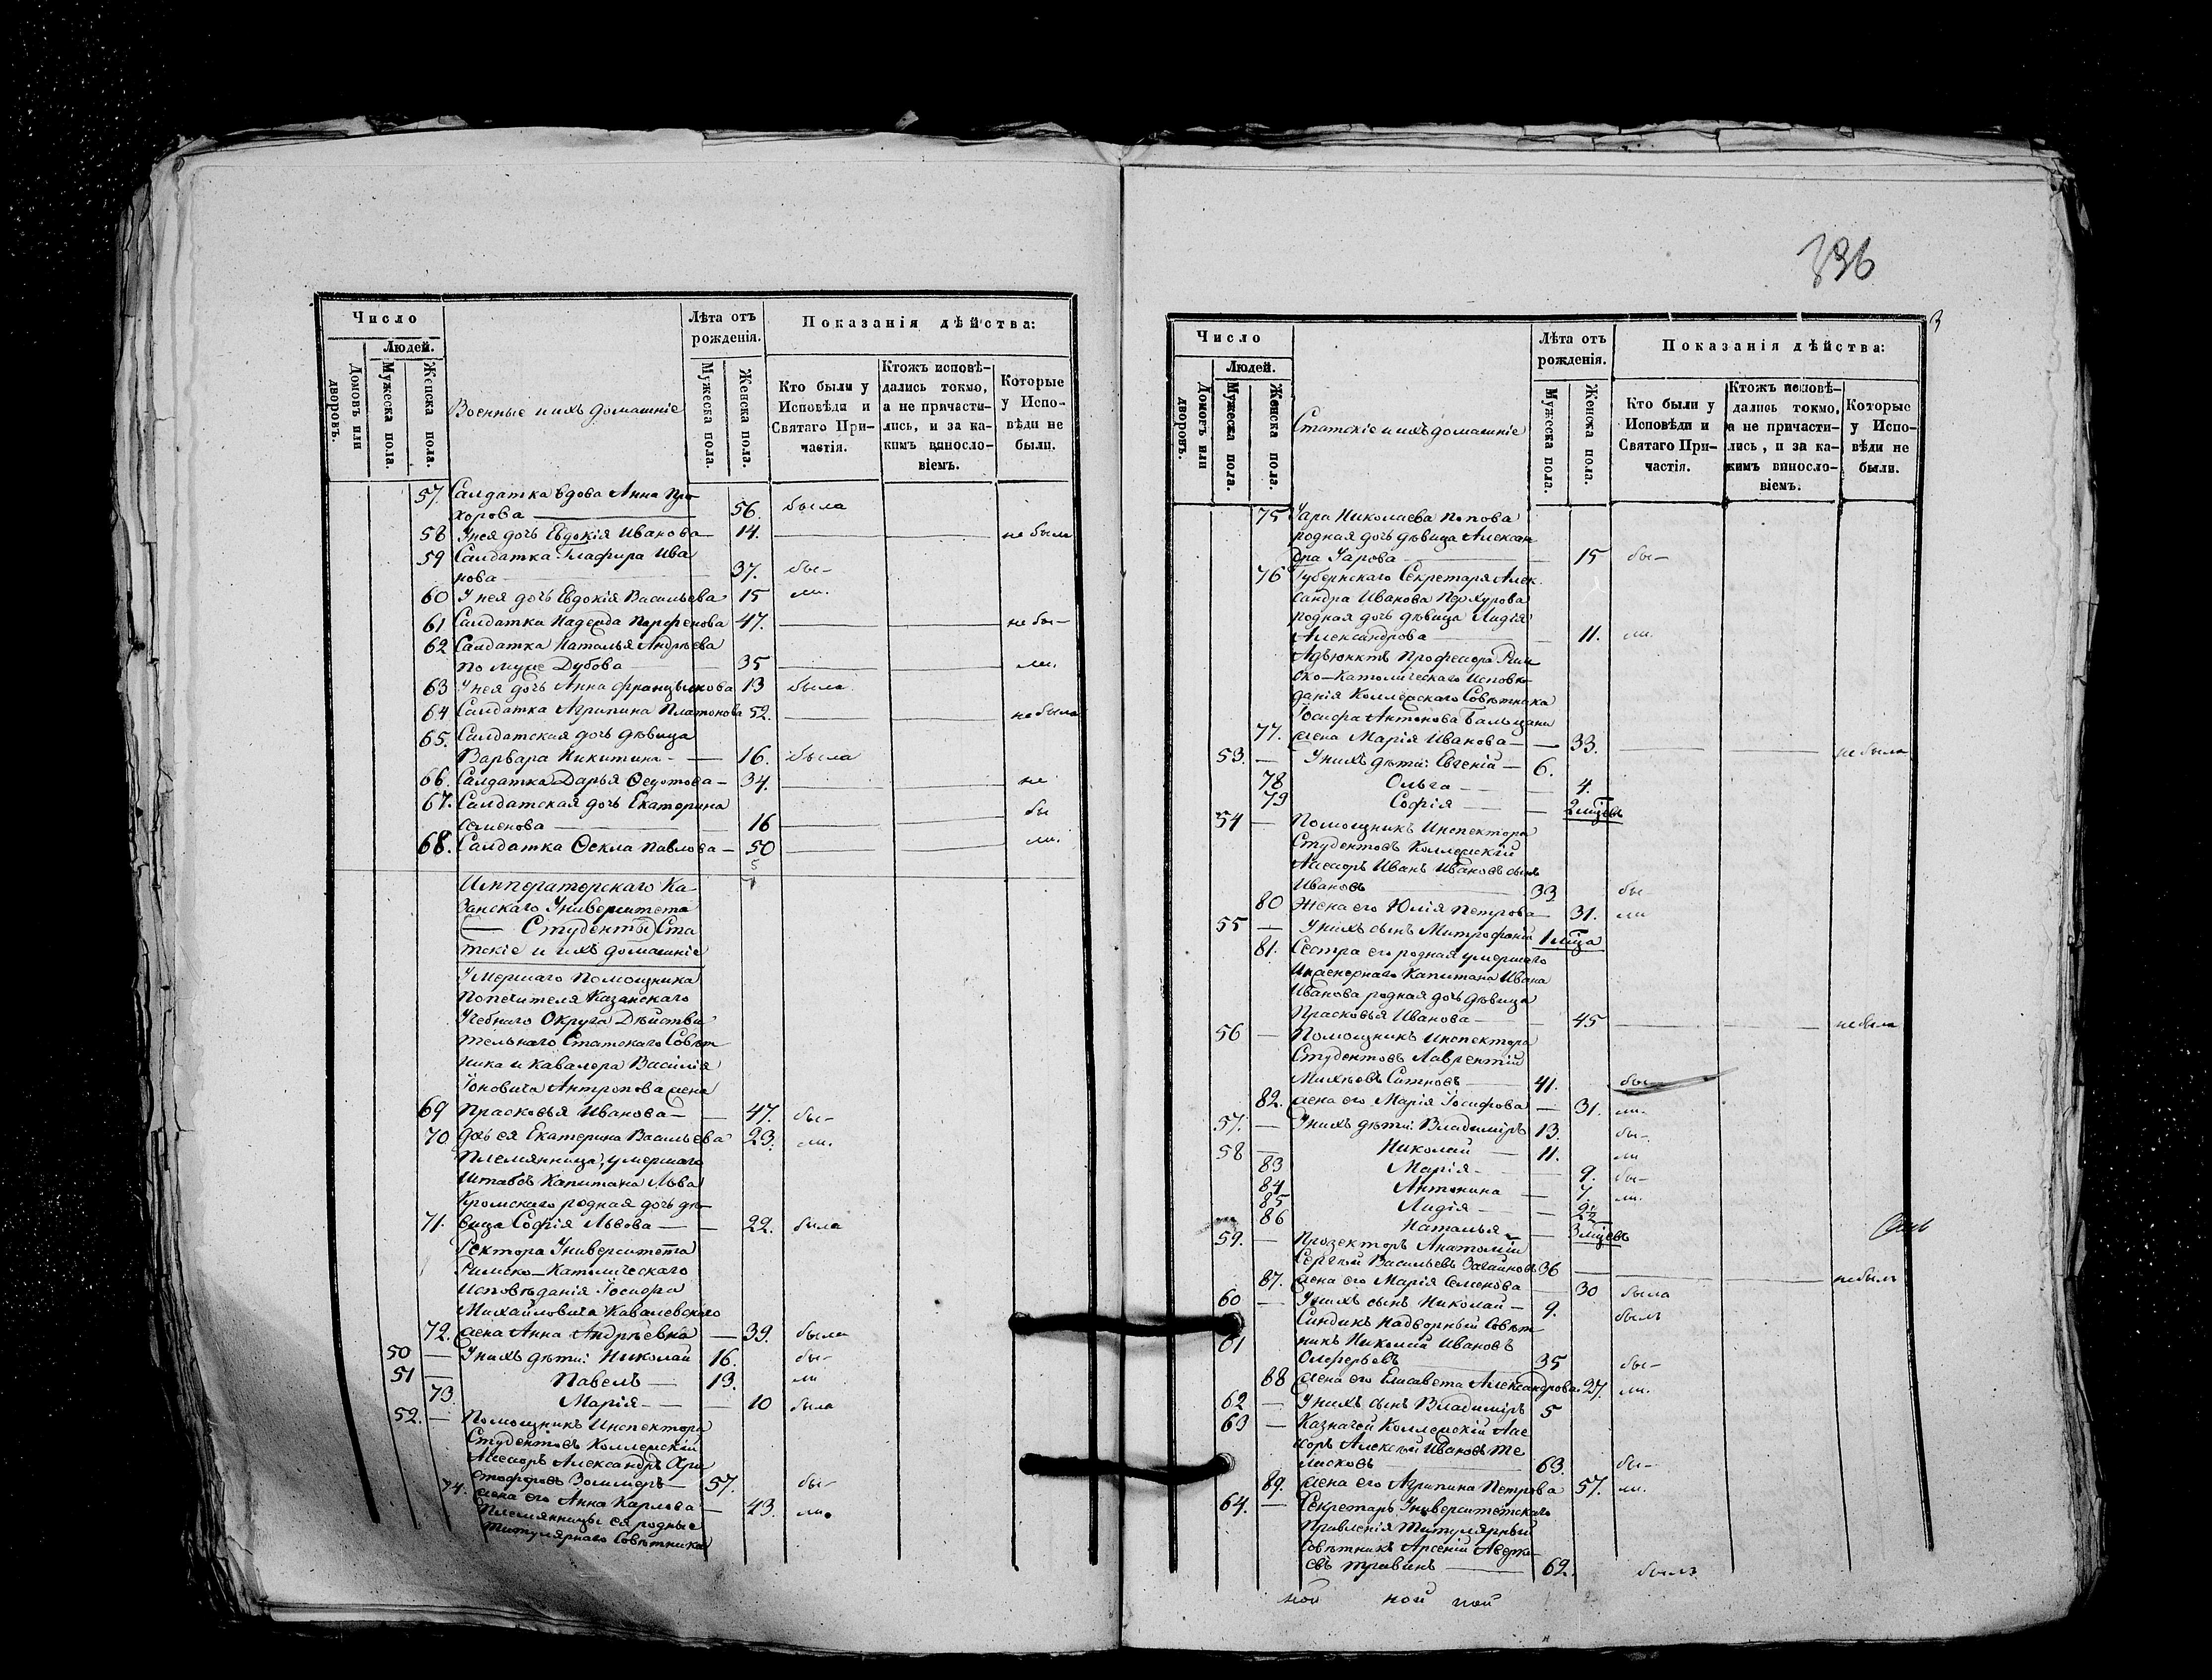 396
3
Число
Людей.
Домовъ или дворовъ.
Мужеска пола.
Женска пола.
Военные и ихъ домашніе
Лѣта отъ рожденія.
Мужеска пола.
Женска пола.
Показанія дѣйства:
Кто были у Исповѣди и Святаго Причастія.
Ктожъ исповѣдались токмо, а не причастились, и за какимъ винословіемъ.
Которые у Исповѣди не были.
57. Салдатка вдова Анна Про
хорова — 56. была
58 У нея дочь Евдокія Иванова — 14. не была
59 Салдатка Глафира Ива
нова — 37. бы-
60 У нея дочь Евдокія Васильева 15 ли.
61 Салдатка Надежда Парфенова 47. не бы-
62 Салдатка Наталья Андрѣева
по муже Дубова — 35 ли.
63 У нея дочь Анна Францышкова 13 была
64 Салдатка Агрипина Платонова 52. не была
65. Салдатская дочь дѣвица
Варвара Никитина — 16. была
66. Салдатка Дарья Федотова — 34. не
67. Салдатская дочь Екатерина
Семенова — 16 бы
68. Салдатка Фекла Павлова — 50 ли.
Императорскаго Ка
занскаго Университета
(— Студенты) Ста
тскіе и ихъ домашніе
Умершаго Помощника
Попечителя Казанскаго
Учебнаго Округа Дѣйстви
тельнаго Статскаго Совѣт
ника и Кавалера Василія
Іоновича Антропова жена
69 Прасковья Иванова — 47. бы-
70 дочь ея Екатерина Васильева 23. ли.
Племянница, умершаго
Штабсъ Капитана Льва
Кромскаго родная дочь дѣ
71. вица Софія Львова — 22. была
Ректора Университета
Римско-Католическаго
Исповѣданія Іосифа
Михайловича Ковалевскаго
72. жена Анна Андрѣевна — 39. была
50 — У нихъ дѣти: Николай 16. бы-
51 Павелъ — 13. ли
73. Марія — 10 была
52. — Помощникъ Инспектора
Студентовъ Коллежскій
Ассесоръ Александръ Хри
стофоровъ Зоммеръ — 57. бы-
74. жена его Анна Карлова — 43. ли.
Племянницы ея родные
Титулярнаго Совѣтника
Число
Людей.
Домовъ или дворовъ.
Мужеска пола.
Женска пола.
Статскіе и ихъ домашніе
Лѣта отъ рожденія.
Мужеска пола.
Женска пола.
Показанія дѣйства:
Кто были у Исповѣди и Святаго Причастія.
Ктожъ исповѣдались токмо, а не причастились, и за какимъ винословіемъ.
Которые у Исповѣди не были.
75 Николаева Попова
родная дочь дѣвица Алексан
дра — 15 бы-
76 Губернскаго Секретаря Алек
сандра Иванова
родная дочь дѣвица Лидія
Александрова — 11. ли.
Адъюнктъ Професора Рим
ско-Католическаго Исповѣ
данія Коллежскаго Совѣтника
Іосифа Антонова
77. жена Марія Иванова — 33. не была
53. — У нихъ дѣти: Евгеній — 6.
78 Ольга — 4.
79 Софія — 2 мцевъ
54 — Помощникъ Инспектора
Студентовъ Коллежскій
Ассесоръ Иванъ Ивановъ сынъ
Ивановъ 33. бы
80 Жена его Юлія Петрова — 31. ли
55 — У нихъ сынъ Митрофаній 1 мца
81. Сестра его родная умершаго
Инженернаго Капитана Ивана
Иванова родная дочь дѣвица
Прасковья Иванова — 45 не была
56 — Помощникъ Инспектора
Студентовъ Лаврентій
Михѣевъ Ситновъ — 41. бы-
82. жена его Марія Іосифова — 31. ли.
57. — У нихъ дѣти: Владиміръ 13. бы-
58 Николай — 11. ли
83 Марія — 9. бы-
84 Антонина — 7. ли.
85 Лидія — 2½
86 Наталья — 3 мцевъ
59. — Прозекторъ Анатоміи
Сергѣй Васильевъ 36 не былъ
87. жена его Марія Семенова — 30 была
60 — У нихъ сынъ Николай — 9. былъ
Синдикъ Надворный Совѣт
61 никъ Николай Ивановъ
Олферьевъ 35 бы-
88 жена его Елисавета Александрова 27. ли.
62 — У нихъ сынъ Владиміръ 5
63 — Казначей Коллежскій Асе
соръ Алексѣй Ивановъ Те
лисковъ 63. бы-
89. жена его Агрипина Петрова 57. ли.
64. — Секретарь Университетскаго
Правленія Титулярный
Совѣтникъ Арсеній
— 62. былъ
ной ной